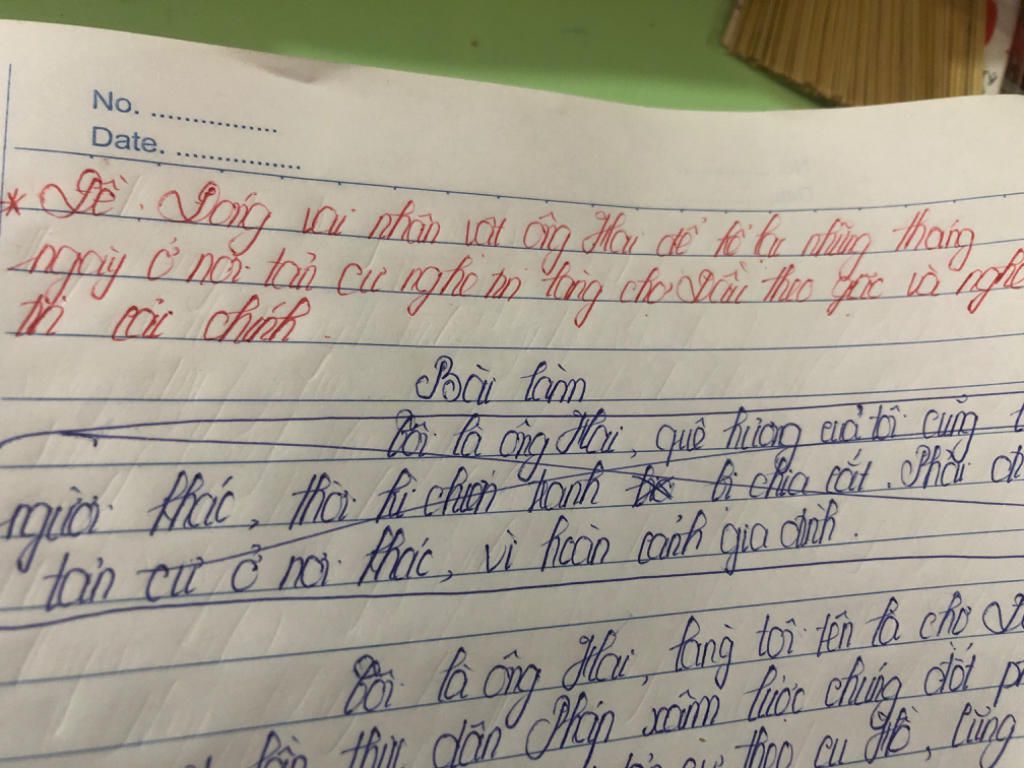 No. ................
Date. ..................
* Đề. Đóng vai nhân vật ông Hai để kể lại những tháng
ngày ở nơi tản cư nghe tin làng chợ Dầu theo giặc và nghe
tin cải chính.
Bài làm
Tôi là ông Hai, quê hương của tôi cũng
người khác, thời kì chiến tranh bị chia cắt. Phải
tản cư ở nơi khác, vì hoàn cảnh gia đình.
Tôi là ông Hai, làng tôi tên là chợ
thực dân Pháp xâm lược chúng đốt
theo cụ Hồ, cũng